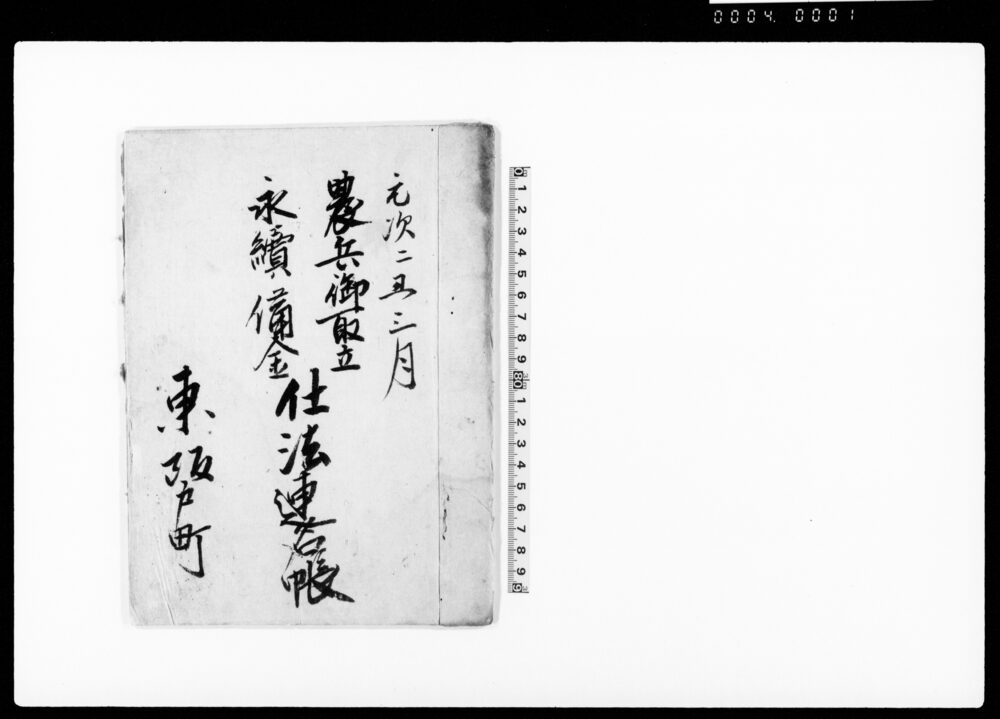 0004 0001
元次二丑三月
農兵御取立
永續備金
仕法連名帳
東坂戸町
0 1 2 3 4 5 6 7 8 9 10 1 2 3 4 5 6 7 8 9